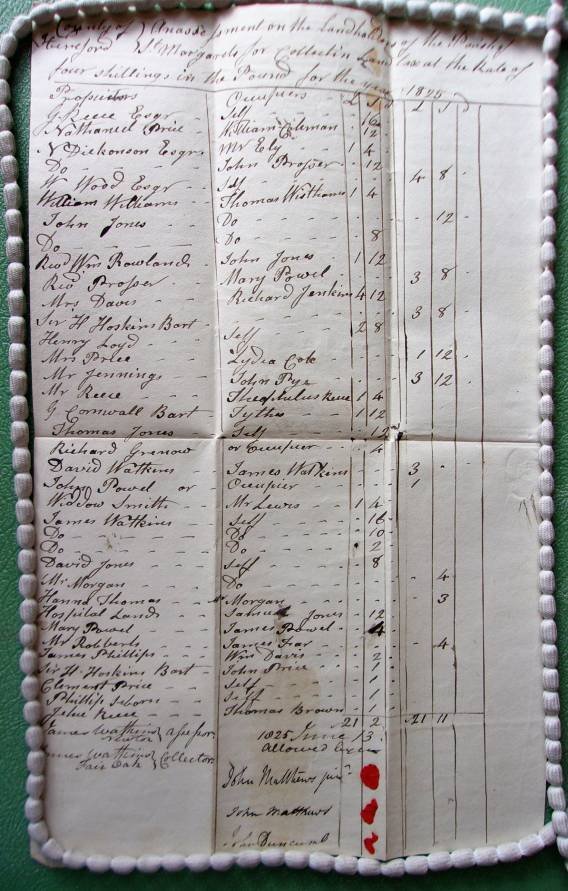 County of } An assessment on the Landholders of the Parish of
Hereford } St Margarets for Collectin Land Tax at the Rate of
four shillings in the Pound for the year 1825
Propsietors Occupiers £ S D £ S D
G Reece Esqr Self 16
Nathaniel Price William Coleman 12
N Dickonson Esqr Mr Ely 1 4
Do John Prosser 12
W Wood Esqr Self 4 8
William Williams Thomas Wisthams 1 4
John Jones Do 12
Do Do 8
Revd Wm Rowlands John Jones 1 12
Revd Prosser Mary Powel 3 8
Mrs Davis Richard Jenkins 4 12
Sir H Hoskins Bart 3 8
Henry Loyd Self 2 8
Mrs Price Lydia Cole 1 12
Mr Jennings John Pye 3 12
Mr Reece Theophilus Reece 1 4
G Cornwall Bart Tythe 1 12
Thomas Jones Self 12
Richard Grenow or Occupier 4
David Watkins James Watkins 3
John Powel or Occupier 1
Widdow Smith Mr Lewis 1 4
James Watkins Self 16
Do Do 10
Do Do 2
David Jones Self 8
Mr Morgan Do 4
Hanna Thomas Mr Morgan 3
Hospital Lands Samuel Jones 12
Mary Powel James Powel 4
Mr Roberts James Far 4
James Phillips Wm Davis 2
Sir H Hoskins Bart John Price 1
Clement Price Self 1
Phillip Seborn Self 1
John Reece Thomas Brown 1
21 2 21 11
James Watkins Newton } assessor 1825 June 13
James Watkins Fair Oak } Collector Allowed
John Matthews junr
John Matthews
John Duncumb